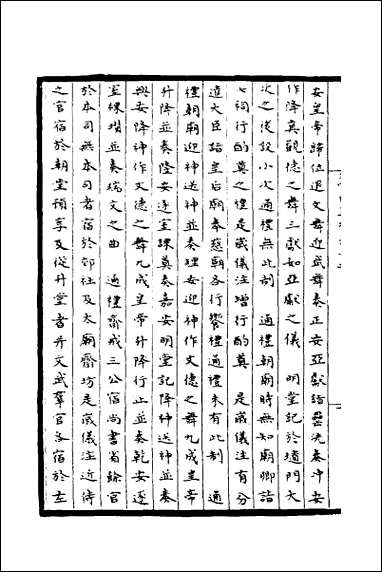 安皇帝歸位退文舞迎武舞奏正安亞獻詣罍洗奏冲安
作降真觀德之舞三獻如亞獻之儀　明堂記於壝門大
次之後設小次通禮無此制　通禮朝廟時無知廟卿詣
七祠行酌奠之禮是歲儀注增行酌奠　是歲儀注有分
遣大臣詣皇后廟奉慈朝各行饗禮通禮未有此制　通
禮朝廟迎神送神並奏理安迎神作文德之舞九成皇帝
升降並奏隆安送室祼奠奏嘉安明堂記降神送神並奏
興安降神作文德之舞九成皇帝升降行止並奏乾安逐
室祼瓚並奏瑞文之曲　通禮齋戒三公宿尚書省餘官
於本司無本司者宿於郊社及太廟齋坊是歲儀注近侍
之官宿於朝堂預享及從升堂者并文武羣官各宿於左